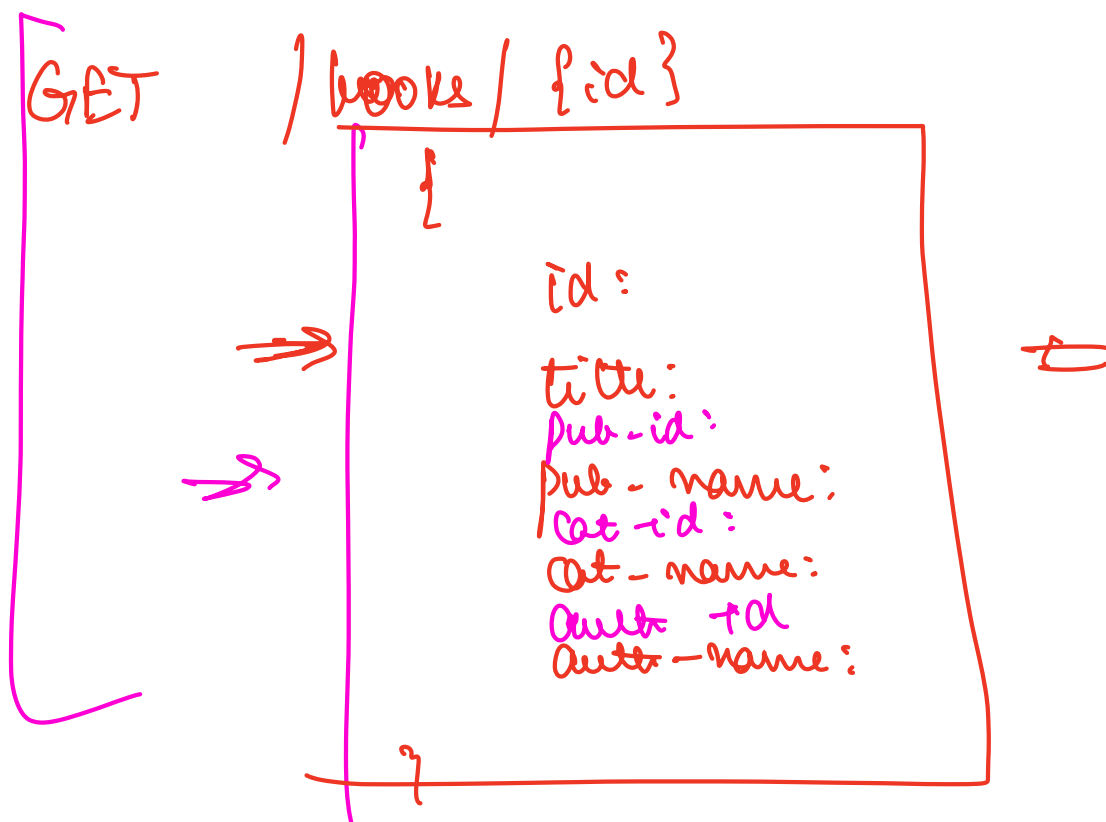 GET /books/{id}
{
id:
title:
pub-id:
pub-name:
cat-id:
cat-name:
auth-id
auth-name:
}